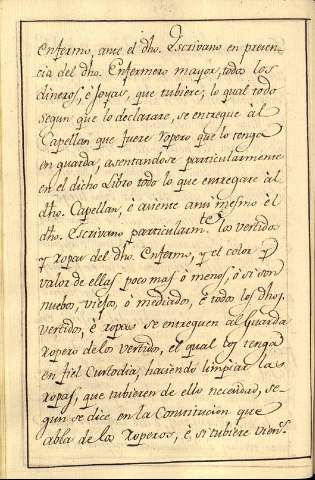 enfermo, ante el dho. Escrivano en presen-
cia del dho. Enfermero mayor, todos los
dineros, è Joyas, que tubiere; lo qual todo
segun que lo declarare, se entregue àl
Capellan que fuere ropero que lo tenga
en guarda, asentandose particularmente
en el dicho Libro todo lo que entregare àl
dho. Capellan, è asiente ansi mesmo èl
dho. Escrivano particularmte. los vestidos
y ropas del dho. Enfermo, y el color, ò
valor de ellas poco mas ò menos, ò si son
nuebos, viejos, ò mediados, è todos los dhos.
vestidos, è ropas se entreguen al Guarda
ropero de los vestidos, el qual los tenga
en fiel custodia, haciendo limpiar las
ropas, que tubieren de ello necesidad, se-
gun se dice en la Constitucion que
abla de los roperos, è si tubiere